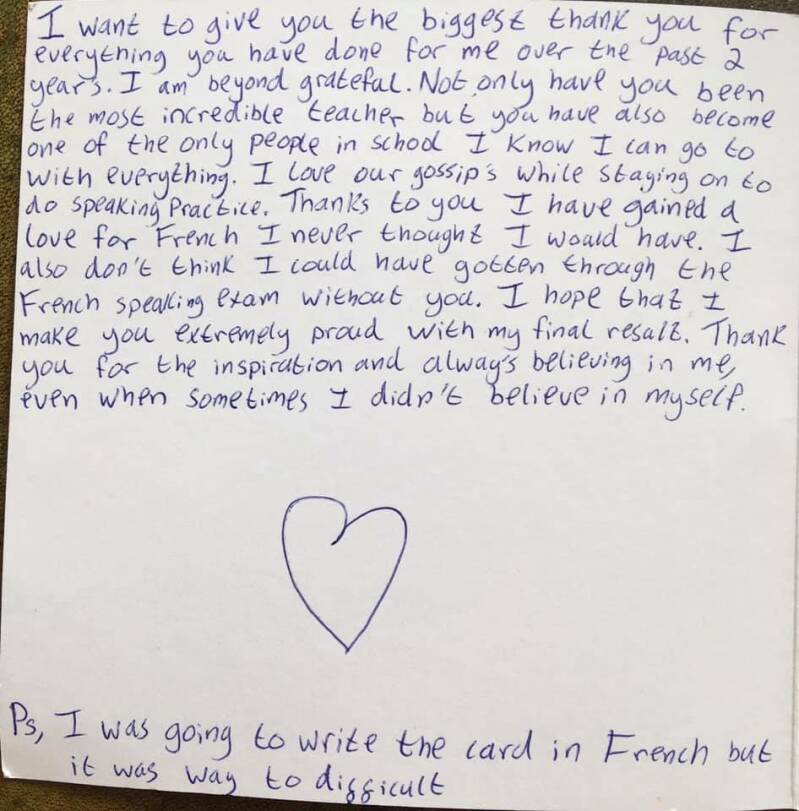 I want to give you the biggest thank you for
everything you have done for me over the past 2
years. I am beyond grateful. Not only have you been
the most incredible teacher but you have also become
one of the only people in school I know I can go to
with everything. I love our gossip's while staying on to
do speaking practice. Thanks to you I have gained a
love for French I never thought I would have. I
also don't think I could have gotten through the
French speaking exam without you. I hope that I
make you extremely proud with my final result. Thank
you for the inspiration and always believing in me,
even when sometimes I didn't believe in myself.
Ps, I was going to write the card in French but
it was way to difficult